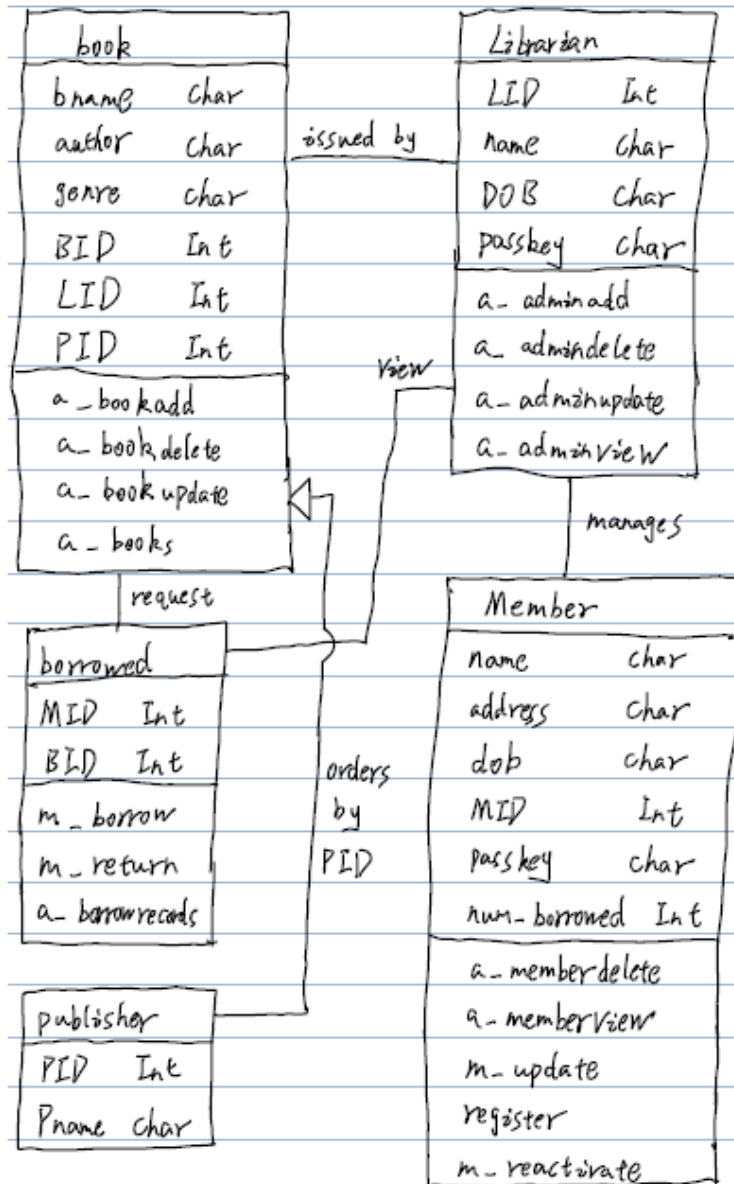 book
bname Char
author Char
genre Char
BID Int
LID Int
PID Int
a_bookadd
a_book delete
a_book update
a_books
issued by
Librarian
LID Int
name Char
DOB Char
passkey Char
a_adminadd
a_admindelete
a_adminupdate
a_adminview
view
manages
request
borrowed
MID Int
BID Int
m_borrow
m_return
a_borrowrecords
orders
by
PID
Member
name Char
address Char
dob Char
MID Int
passkey Char
num_borrowed Int
a_memberdelete
a_memberview
m_update
register
m_reactivate
publisher
PID Int
Pname Char